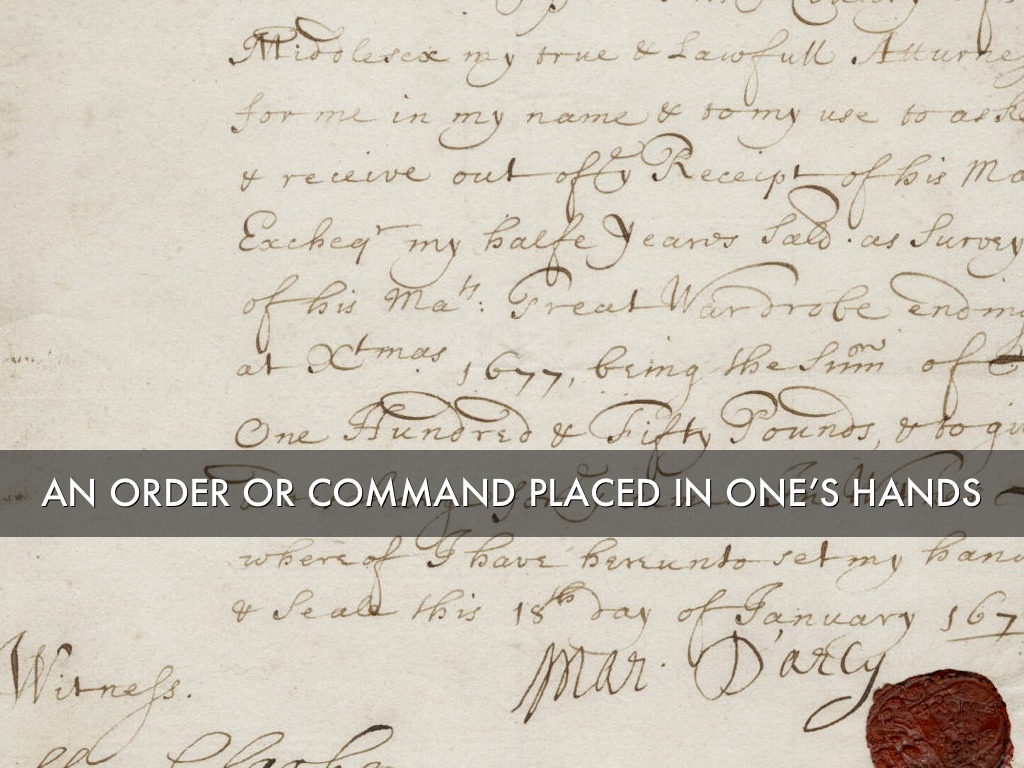 Middlesex my true & Lawfull Atturney
for me in my name & to my use to aske
& receive out of yͤ Receipt of his Ma
Excheqʳ my halfe Yeares Sald. as Survey
of his Maᵗˢ: Great Wardrobe ending
at Xtmas 1677, being the Sum̄ of
One Hundred & Fifty Pounds, & to giv
AN ORDER OR COMMAND PLACED IN ONE'S HANDS
whereof I have hereunto set my hand
& Seale this 18th day of January 167
Mar: D'arcy
Witness.